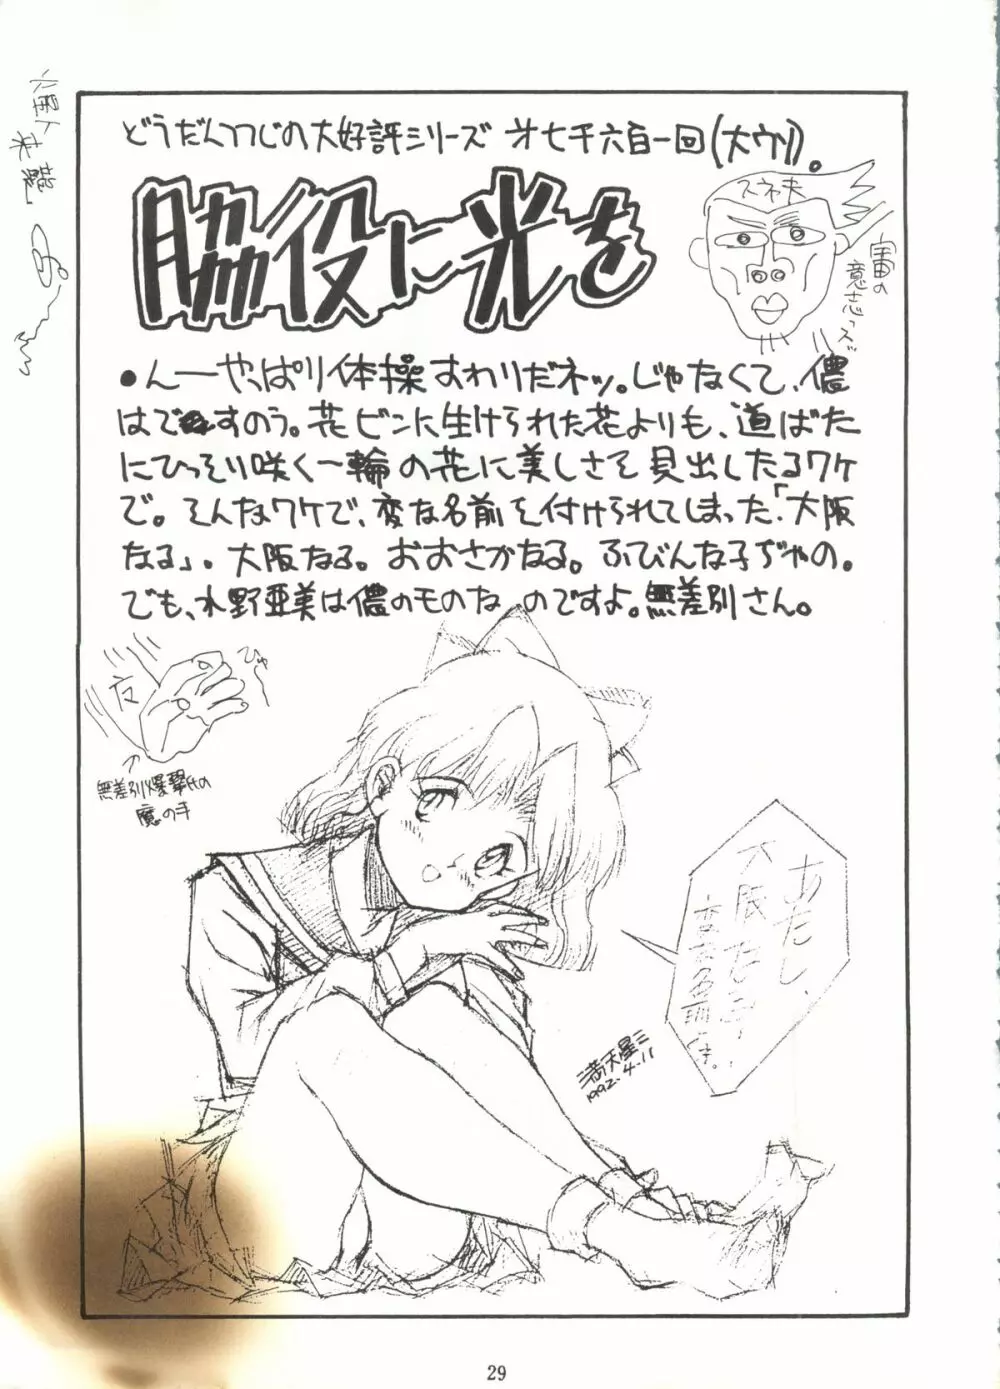 どうだんつつじの大好評シリーズ 才七千六百一回(大ウソ)。
脇役に光を
スネ夫
宙の
意志っス"
●んーやっぱり体操すわりだネッ。じゃなくて、儂
はですのう。花ビンに生けられた花よりも、道ばた
にひっそり咲く一輪の花に美しさを見出したるワケ
で。そんなワケで、変な名前を付けられてしまった「大阪
なる」。大阪なる。おおさかなる。ふびんな子ぢゃの。
でも、水野亜美は儂のものなのですよ。無差別さん。
ひゅー
無差別爆撃氏の
魔の手
あたし、
大阪なる…
変な名前…
満天星三
1992.4.11
29